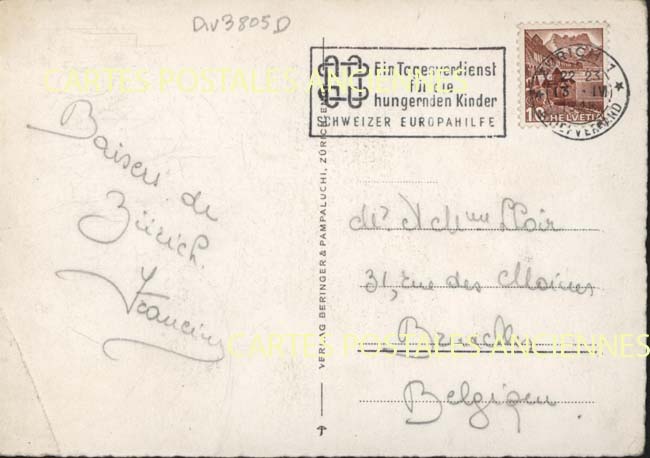 Div3805D
Ein Tagesverdienst
für die
hungernden Kinder
SCHWEIZER EUROPAHILFE
ZÜRICH 1
22-23
13.IV
BRIEFVERSAND
10
HELVETIA
CARTES POSTALES ANCIENNES
Baisers de
Zürich.
Francine
VERLAG BERINGER & PAMPALUCHI, ZÜRICH
Mr & Mme
31, rue des Moines
Bruxelles
Belgique.
CARTES POSTALES ANCIENNES